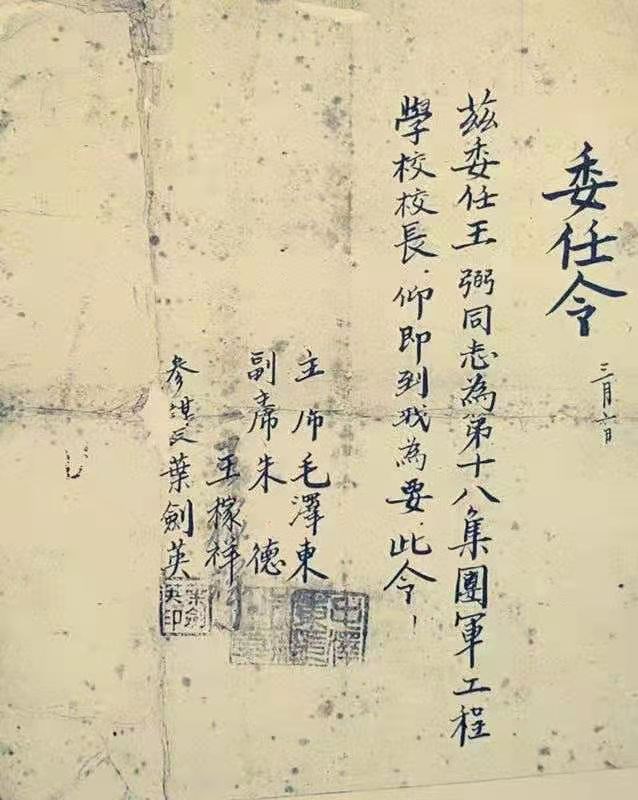 委任令
三月六日
茲委任王弼同志為第十八集團軍工程
學校校長．仰即到職為要．此令！
主席毛澤東
副主席朱德
王稼祥
參謀長葉劍英
葉劍英印